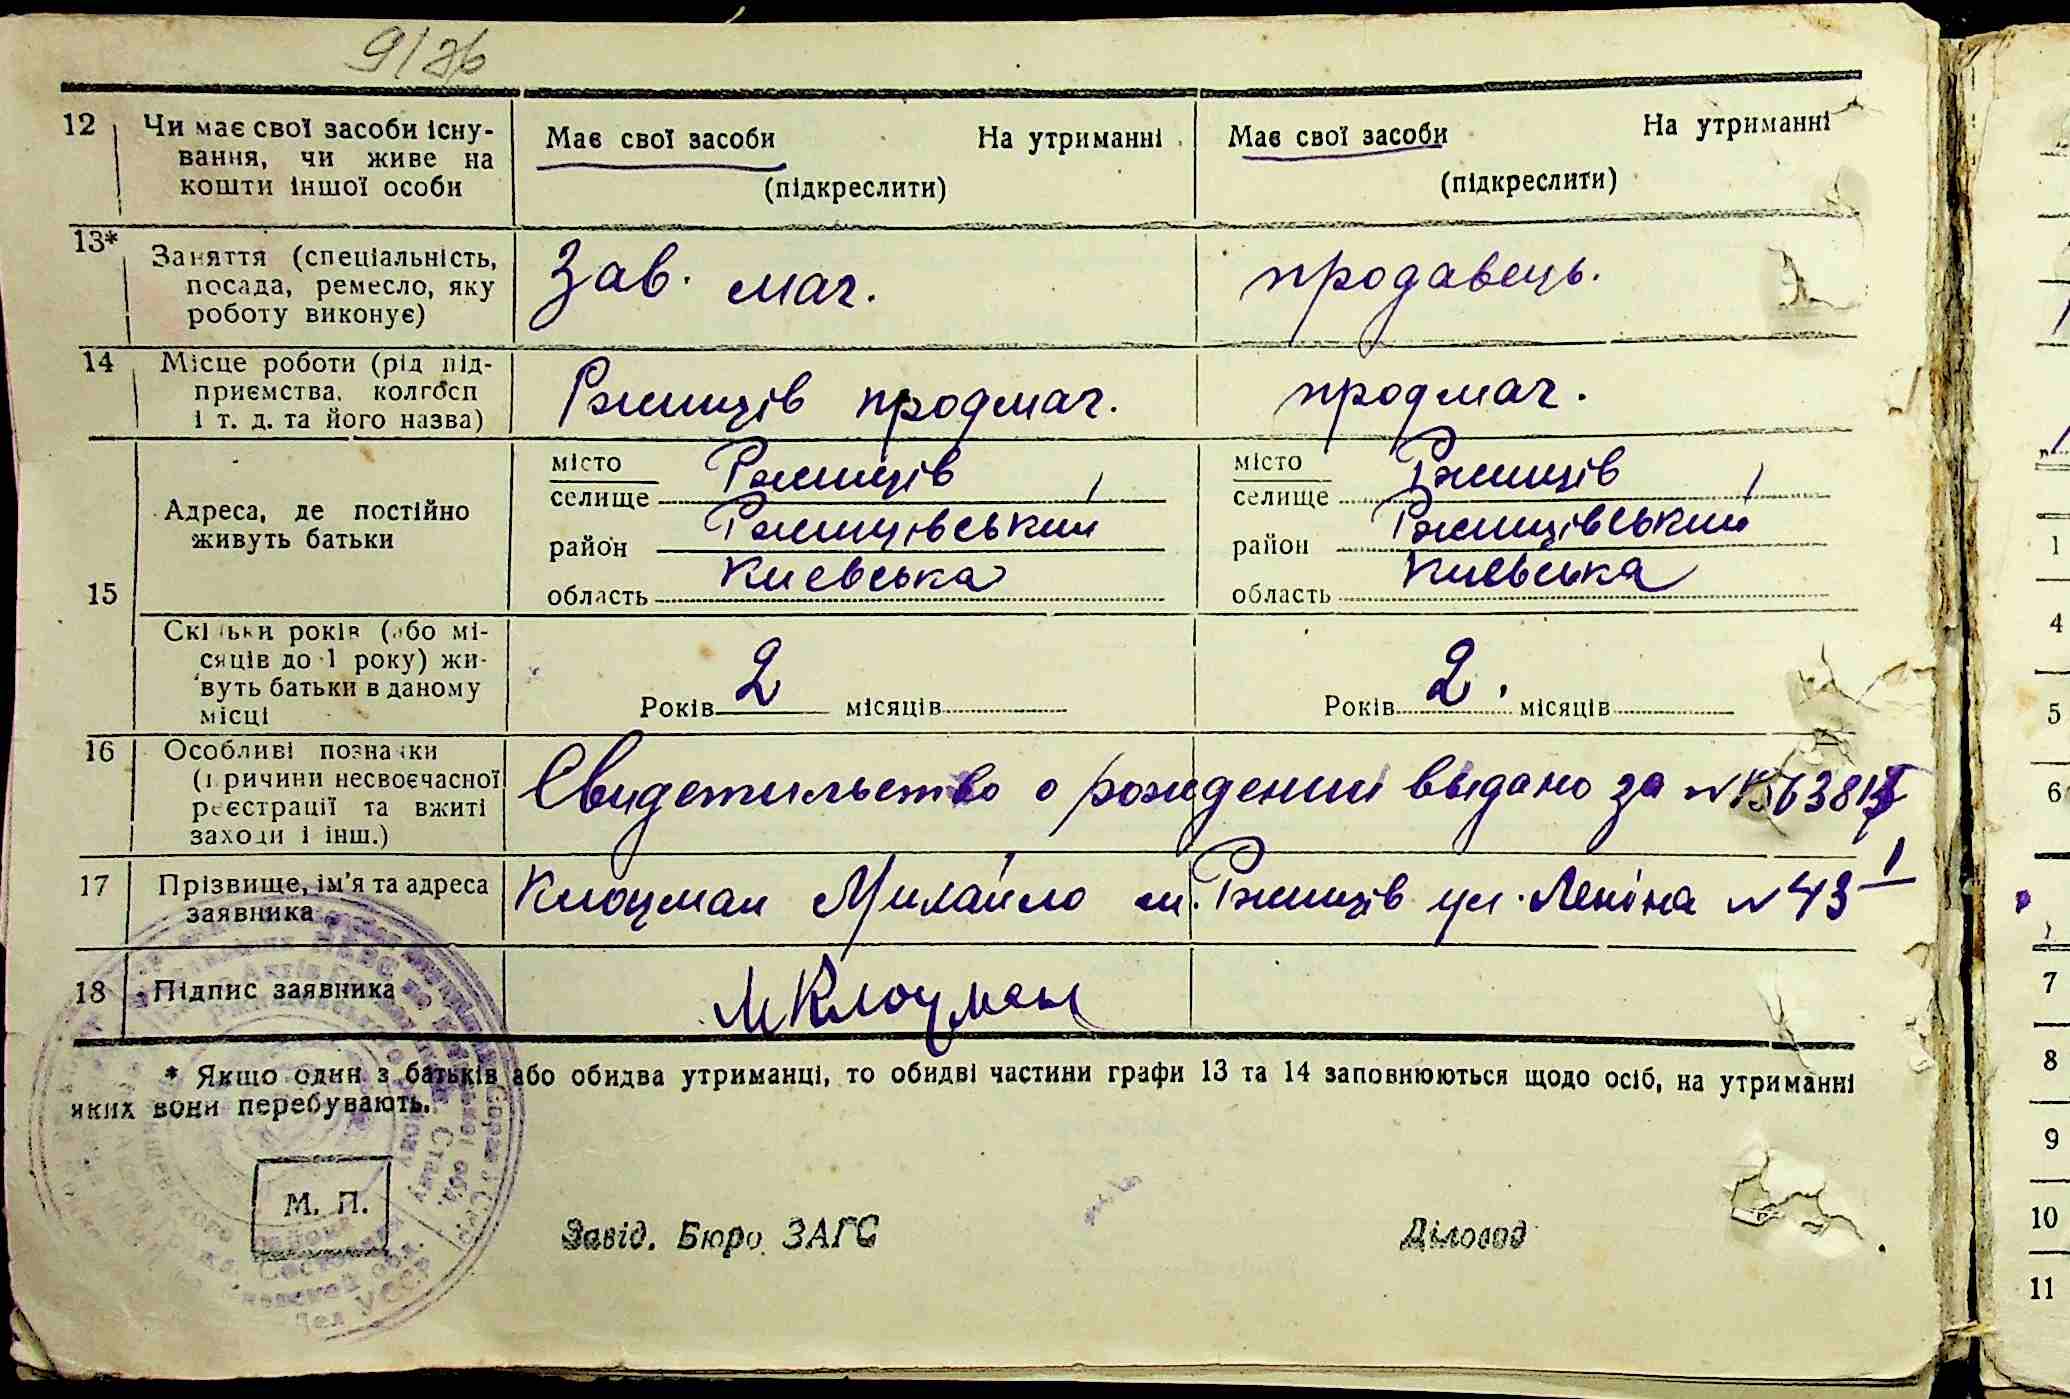 12 Чи має свої засоби існу-
вання, чи живе на
кошти іншої особи
Має свої засоби На утриманні
(підкреслити)
Має свої засоби На утриманні
(підкреслити)
13* Заняття (спеціальність,
посада, ремесло, яку
роботу виконує)
Зав. маг.
продавець.
14 Місце роботи (рід під-
приємства, колгосп
і т. д. та його назва)
Ржищів продмаг.
продмаг.
15 Адреса, де постійно
живуть батьки
місто Ржищів
селище
район Ржищівський
область Києвська
місто Ржищів
селище
район Ржищівський
область Києвська
Скільки років (або мі-
сяців до 1 року) жи-
вуть батьки в даному
місці
Років 2 місяців
Років 2. місяців
16 Особливі позначки
(причини несвоєчасної
реєстрації та вжиті
заходи і інш.)
Свидетильство о рождении выдано за №
17 Прізвище, ім'я та адреса
заявника
Клоцман Михайло м. Ржищів ул. Леніна №43
18 Підпис заявника
МКлоцман
* Якщо один з батьків або обидва утриманці, то обидві частини графи 13 та 14 заповнюються щодо осіб, на утриманні
яких вони перебувають.
М. П.
Завід. Бюро ЗАГС Діловод
1
4
5
6
7
8
9
10
11